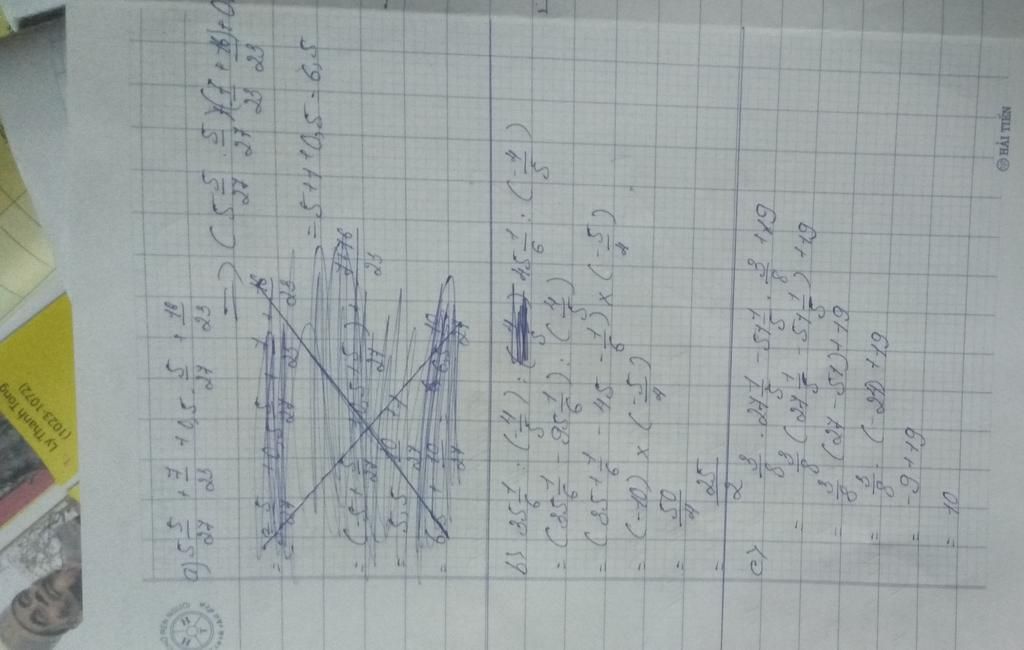 a) 5 5/27 + 7/23 + 0,5 - 5/27 + 16/23
=> (5 5/27 - 5/27) + (7/23 + 16/23) + 0
= 5 + 1 + 0,5 = 6,5
b) 35 1/6 : (-4/5) - 45 1/6 : (-4/5)
= (35 1/6 - 95 1/6) : (-4/5)
= (35 + 1/6 - 45 - 1/6) x (-5/4)
= (-10) x (-5/4)
= 50/4
= 25/2
c) 3/8 . 27 1/5 - 51 1/5 . 3/8 + 19
= 3/8 (27 1/5 - 51 1/5) + 19
= 3/8 (27 - 51) + 19
= 3/8 . (-24) + 19
= -9 + 19
= 10
HẢI TIẾN
1.
Ly Thanh Tong
(1023-1072)